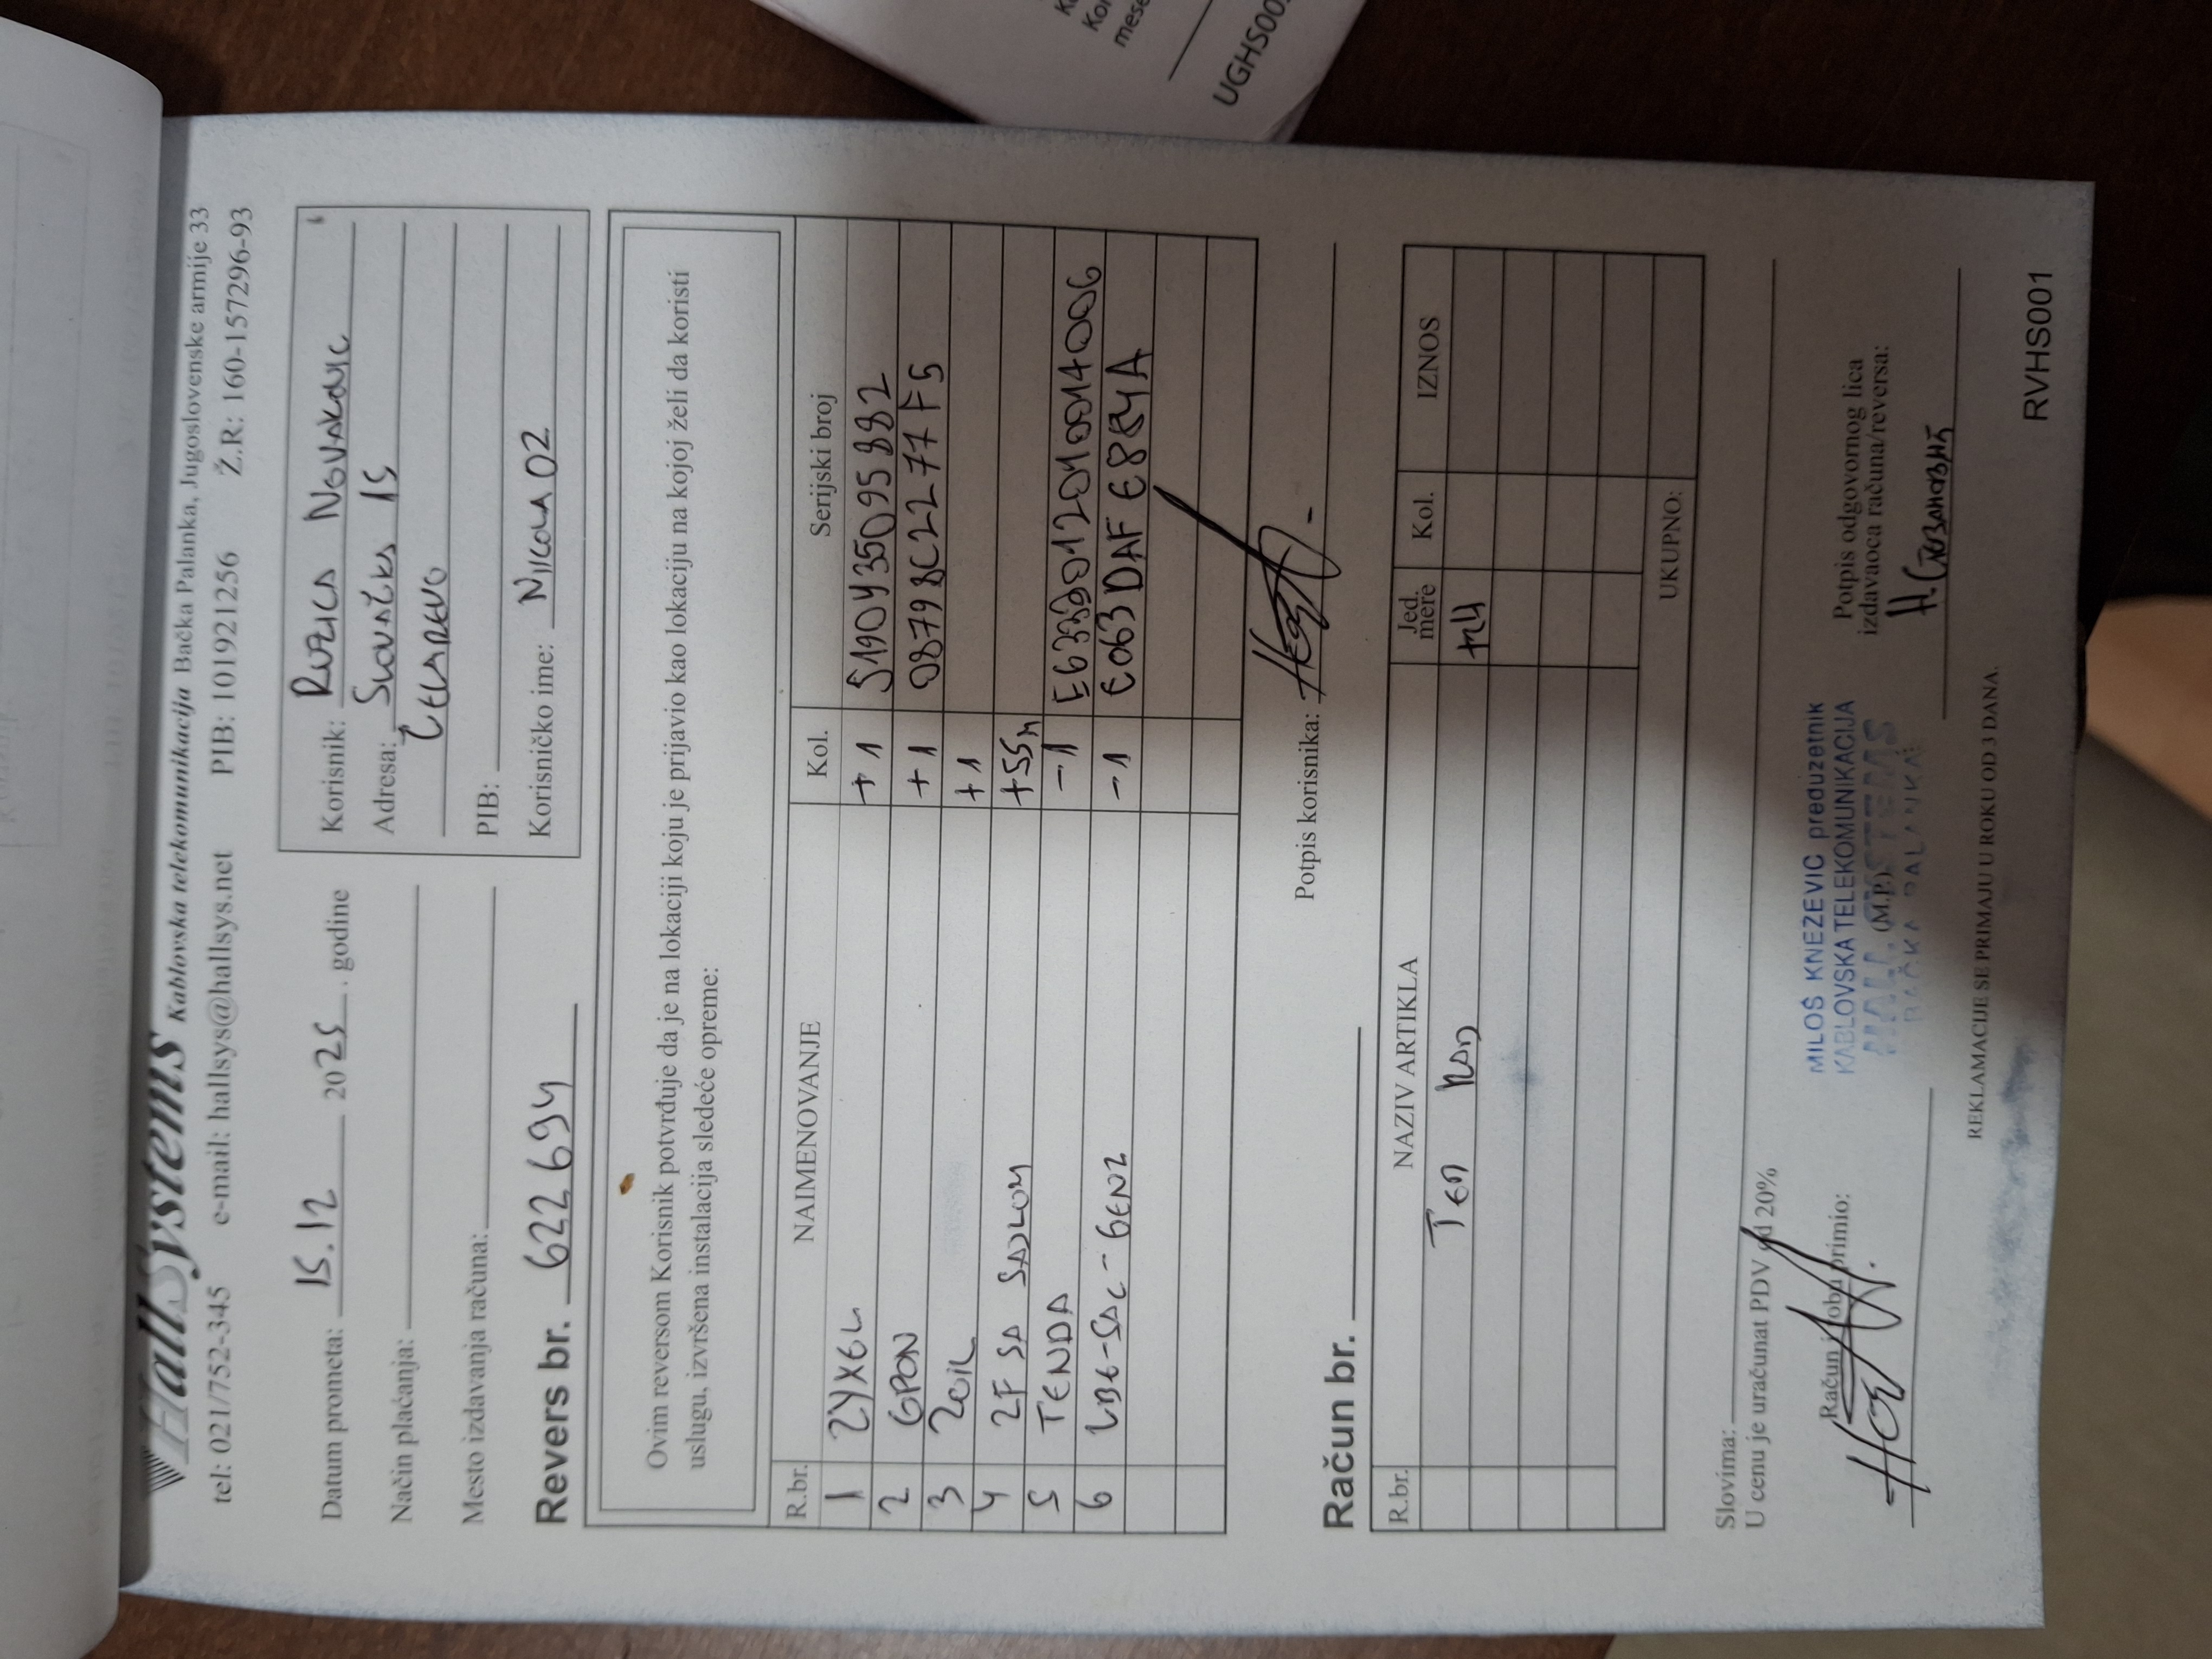 HallSystems Kablovska telekomunikacija Bačka Palanka, Jugoslovenske armije 33
tel: 021/752-345 e-mail: hallsys@hallsys.net PIB: 101921256 Ž.R: 160-157296-93
Datum prometa: 15.12 2025. godine
Način plaćanja:
Mesto izdavanja računa:
Revers br. 622694
Korisnik: RUŽICA NOVAKOVIC
Adresa: SLOVAČKA 15
ČELAREVO
PIB:
Korisničko ime: NIKOLA02
Ovim reversom Korisnik potvrđuje da je na lokaciji koju je prijavio kao lokaciju na kojoj želi da koristi
uslugu, izvršena instalacija sledeće opreme:
R.br. NAIMENOVANJE Kol. Serijski broj
1 ZYXEL +1 S190Y35095882
2 GPON +1 08798C2277F5
3 ZOIL +1
4 2F SA SAJLOM +55m
5 TENDA -1
6 LBE-5AC-GEN2 -1 E063DAFE884A
Potpis korisnika:
Račun br.
R.br. NAZIV ARTIKLA Jed. mere Kol. IZNOS
UKUPNO:
Slovima:
U cenu je uračunat PDV od 20%
Račun i robu primio:
MILOŠ KNEZEVIC preduzetnik
KABLOVSKA TELEKOMUNIKACIJA
HALL SYSTEMS
(M.P.)
BAČKA PALANKA
Potpis odgovornog lica
izdavaoca računa/reversa:
REKLAMACIJE SE PRIMAJU U ROKU OD 3 DANA.
RVHS001
UGHS00